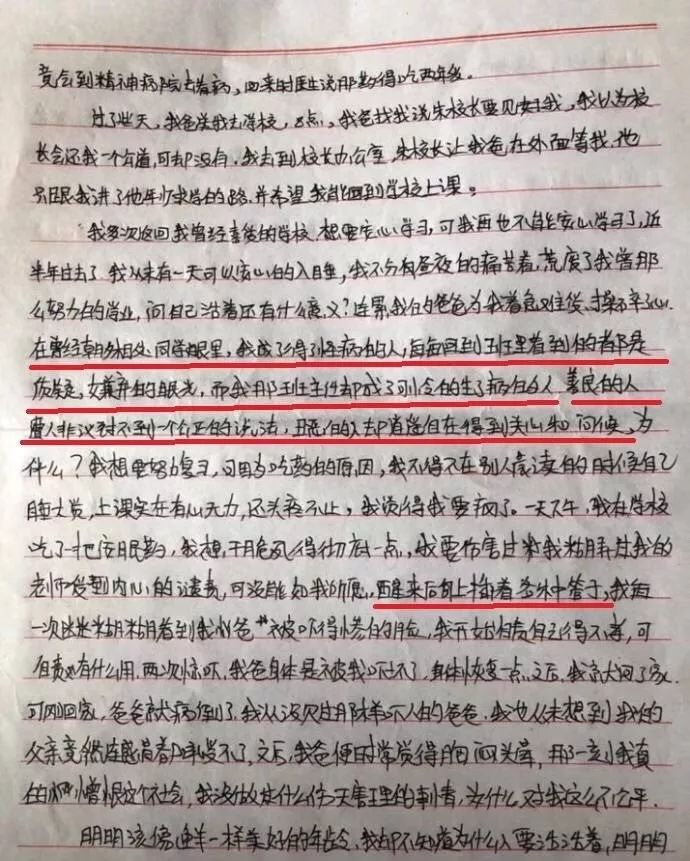 竟会到精神病院去看病，回来时医生说那药得吃两年级。
过了些天，我爸送我去学校，8点，我爸找我说朱校长要见我，我以为校
长会还我一个公道，可却没有，我去到校长办公室，朱校长让我爸在外面等我，他
只跟我讲了他年少求学的路，并希望我能回到学校上课。
我多次返回我曾经喜爱的学校，想要安心学习，可我再也不能安心学习了，近
半年过去了，我从未有一天可以安心的入睡，我不分白昼夜的痛苦着，荒废了我曾那
么努力的学业，问自己活着还有什么意义？连累我的爸爸为我着急难受、操碎了心。
在曾经朝夕相处同学眼里，我成了得了怪病的人，每每回到班里看到的都是
质疑，嫌弃的眼光，而我那班主任却成了可怜的生了病的人，善良的人
遭人非议得不到一个公正的说法，丑恶的人却逍遥自在得到关心和问候，为
什么？我想要努力复习，可因为吃药的原因，我不得不在别人晨读的时候自己
睡大觉，上课实在有心无力，还头疼不止，我觉得我要疯了。一天下午，我在学校
吃了一把安眠药，我想，干脆死得彻底一点，
老师受到内心的谴责，可没能如我所愿，醒来后身上插着各种管子，我每
一次迷迷糊糊看到我爸爸被吓得惨白的脸，我开始自责自己得不孝，可
自责又有什么用，两次惊吓，我爸身体是被我吓坏了，身体恢复一点之后，我就回了家，
可刚回家，爸爸就病倒了，我从没见过那样吓人的爸爸，我也从未想到我的
父亲竟然连
之后，我爸便时常觉得胸闷头晕，那一刻我真
的很憎恨这个社会，我没做过什么伤天害理的事情，为什么对我这么不公平。
明明该像鲜花一样美好的年龄，我却不知道为什么人要活活着，明明